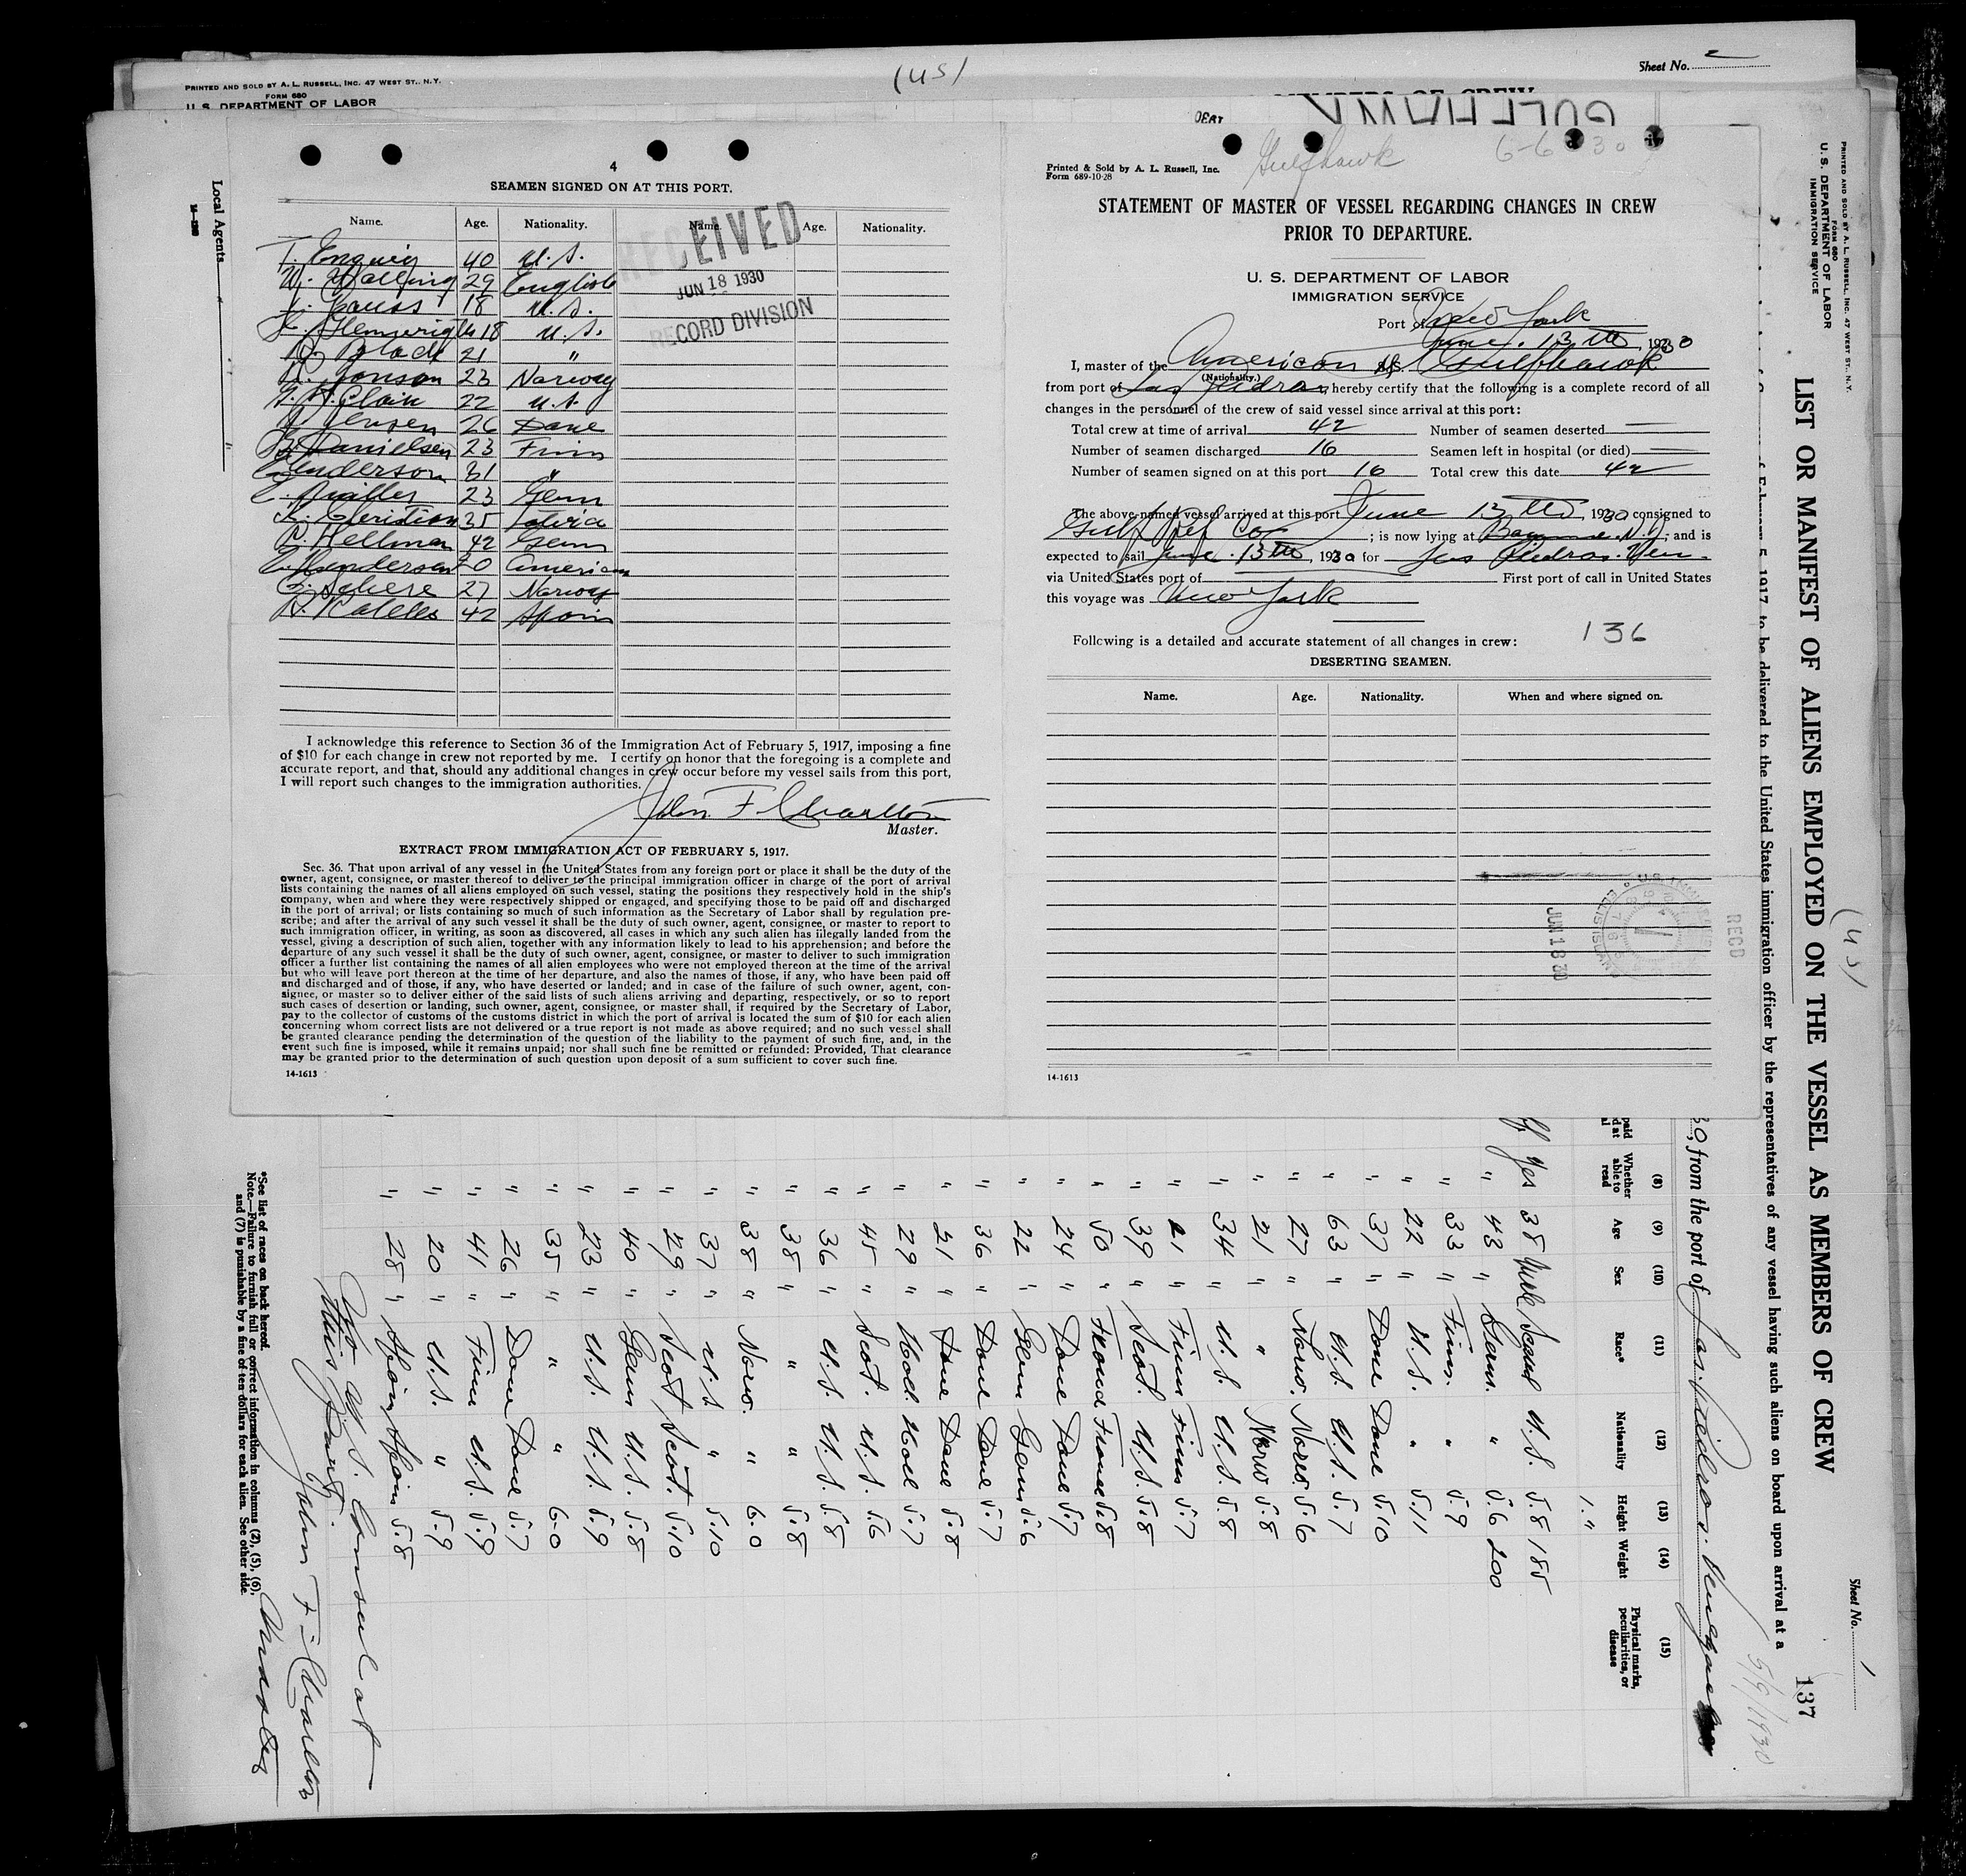 PRINTED AND SOLD BY A. L. RUSSELL, INC. 47 WEST ST., N.Y.
FORM 680
U. S. DEPARTMENT OF LABOR
(US)
Sheet No. 2
GULFHAWK
Local Agents
4
SEAMEN SIGNED ON AT THIS PORT.
Name. Age. Nationality. Name. Age. Nationality.
RECEIVED
JUN 18 1930
RECORD DIVISION
40 U.S.
W. 29 English
18 U.S.
18 U.S.
Black 21 "
Jonson 23 Norway
Clain 22 U.S.
Jensen 26 Dane
Danielsen 23 Finn
Enderson 31 "
23 Germ
35 Latvia
Hellman 42 Germ
Henderson 20 American
27 Norway
42 Spain
I acknowledge this reference to Section 36 of the Immigration Act of February 5, 1917, imposing a fine
of $10 for each change in crew not reported by me. I certify on honor that the foregoing is a complete and
accurate report, and that, should any additional changes in crew occur before my vessel sails from this port,
I will report such changes to the immigration authorities.
John F. Charlton
Master.
EXTRACT FROM IMMIGRATION ACT OF FEBRUARY 5, 1917.
Sec. 36. That upon arrival of any vessel in the United States from any foreign port or place it shall be the duty of the
owner, agent, consignee, or master thereof to deliver to the principal immigration officer in charge of the port of arrival
lists containing the names of all aliens employed on such vessel, stating the positions they respectively hold in the ship's
company, when and where they were respectively shipped or engaged, and specifying those to be paid off and discharged
in the port of arrival; or lists containing so much of such information as the Secretary of Labor shall by regulation pre-
scribe; and after the arrival of any such vessel it shall be the duty of such owner, agent, consignee, or master to report to
such immigration officer, in writing, as soon as discovered, all cases in which any such alien has illegally landed from the
vessel, giving a description of such alien, together with any information likely to lead to his apprehension; and before the
departure of any such vessel it shall be the duty of such owner, agent, consignee, or master to deliver to such immigration
officer a further list containing the names of all alien employees who were not employed thereon at the time of the arrival
but who will leave port thereon at the time of her departure, and also the names of those, if any, who have been paid off
and discharged and of those, if any, who have deserted or landed; and in case of the failure of such owner, agent, con-
signee, or master so to deliver either of the said lists of such aliens arriving and departing, respectively, or so to report
such cases of desertion or landing, such owner, agent, consignee, or master shall, if required by the Secretary of Labor,
pay to the collector of customs of the customs district in which the port of arrival is located the sum of $10 for each alien
concerning whom correct lists are not delivered or a true report is not made as above required; and no such vessel shall
be granted clearance pending the determination of the question of the liability to the payment of such fine, and, in the
event such fine is imposed, while it remains unpaid; nor shall such fine be remitted or refunded: Provided, That clearance
may be granted prior to the determination of such question upon deposit of a sum sufficient to cover such fine.
14-1613
Gulfhawk 6-6 30
Printed & Sold by A. L. Russell, Inc.
Form 689-10-28
STATEMENT OF MASTER OF VESSEL REGARDING CHANGES IN CREW
PRIOR TO DEPARTURE.
U. S. DEPARTMENT OF LABOR
IMMIGRATION SERVICE
Port of New York
June. 13th, 1930
I, master of the American S/S. Gulfhawk
(Nationality.)
from port of Las Piedras, hereby certify that the following is a complete record of all
changes in the personnel of the crew of said vessel since arrival at this port:
Total crew at time of arrival 42 Number of seamen deserted
Number of seamen discharged 16 Seamen left in hospital (or died)
Number of seamen signed on at this port 16 Total crew this date 42
The above-named vessel arrived at this port June 13th, 1930 consigned to
Gulf Ref Co; is now lying at Bayonne. N.J; and is
expected to sail June. 13th, 1930 for Las Piedras. Ven.
via United States port of First port of call in United States
this voyage was New York
Following is a detailed and accurate statement of all changes in crew: 136
DESERTING SEAMEN.
Name. Age. Nationality. When and where signed on.
ELLIS ISLAND
JUN 18 30
RECD
14-1613
PRINTED AND SOLD BY A. L. RUSSELL, INC. 47 WEST ST., N.Y.
FORM 680
U. S. DEPARTMENT OF LABOR
IMMIGRATION SERVICE
Sheet No. 1
LIST OR MANIFEST OF ALIENS EMPLOYED ON THE VESSEL AS MEMBERS OF CREW 137
(US)
of February 5, 1917, to be delivered to the United States immigration officer by the representatives of any vessel having such aliens on board upon arrival at a
5/9/1930
30, from the port of Las. Piedras. Venezuela
(8) (9) (10) (11) (12) (13) (14) (15)
Whether able to read Age Sex Race* Nationality Height Weight Physical marks, peculiarities, or disease
Yes 38 U.S. 5.8 185
" 43 " Germ. " 5.6 200
" 33 " Finn. " 5.9
" 22 " U.S. " 5.11
" 37 " Dane Dane 5.10
" 63 " U.S. U.S. 5.7
" 27 " Norw. Norw. 5.6
" 21 " " Norw 5.8
" 34 " U.S. U.S. 5.8
" 21 " Finn Finn 5.7
" 39 " Scot. U.S. 5.8
" 50 " France 5.8
" 24 " Dane Dane 5.7
" 22 " Germ Germ 5.6
" 36 " Dane Dane 5.7
" 21 " Dane Dane 5.8
" 29 " Holl. Holl 5.7
" 45 " Scot. U.S. 5.6
" 36 " U.S. U.S. 5.8
" 38 " " " 5.8
" 38 " Norw. " 6.0
" 37 " U.S " 5.10
" 29 " Scot Scot. 5.10
" 40 " Germ U.S. 5.8
" 23 " U.S. U.S. 5.9
" 35 " " " 6-0
" 26 " Dane Dane 5.7
" 41 " Finn U.S. 5.9
" 20 " U.S. " 5.9
" 28 " Spain Spain 5.8
No U.S. Consul at
this Port.
John F. Charlton
Master
*See list of races on back hereof.
Note.—Failure to furnish full or correct information in columns (2), (5), (6),
and (7) is punishable by a fine of ten dollars for each alien. See other side.